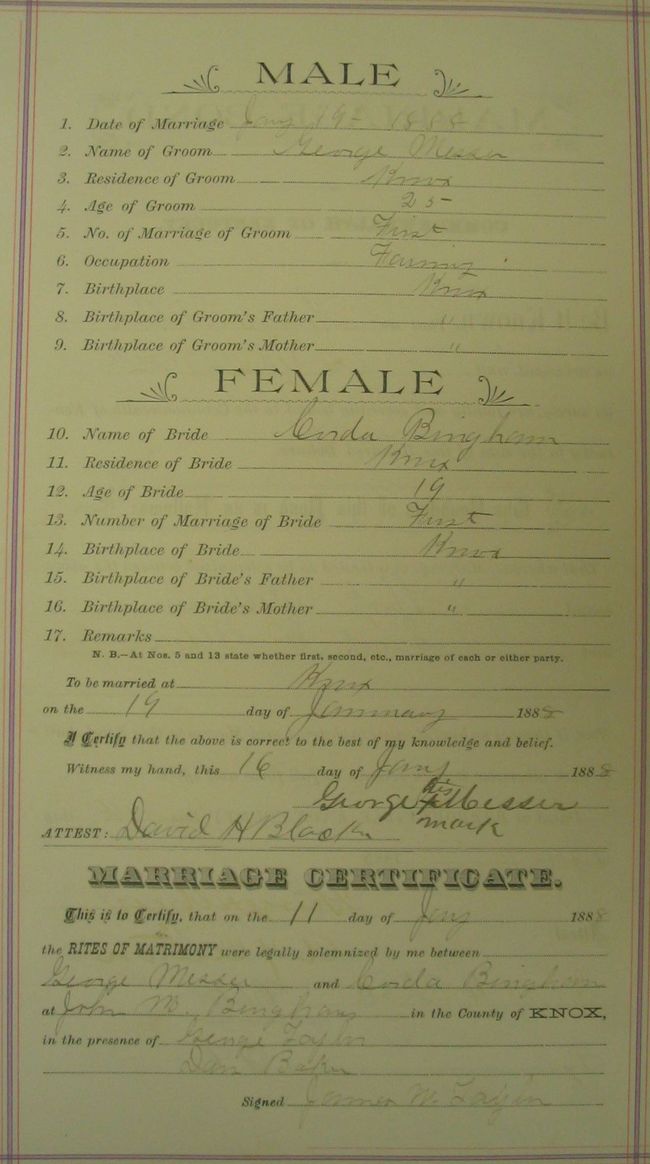 MALE
1. Date of Marriage Jany 19 - 1888
2. Name of Groom George Messer
3. Residence of Groom Knox
4. Age of Groom 25
5. No. of Marriage of Groom First
6. Occupation Farming
7. Birthplace Knox
8. Birthplace of Groom's Father "
9. Birthplace of Groom's Mother "
FEMALE
10. Name of Bride Corda Bingham
11. Residence of Bride Knox
12. Age of Bride 19
13. Number of Marriage of Bride First
14. Birthplace of Bride Knox
15. Birthplace of Bride's Father "
16. Birthplace of Bride's Mother "
17. Remarks
N. B.—At Nos. 5 and 13 state whether first, second, etc., marriage of each or either party.
To be married at Knox
on the 19 day of January 1888
I Certify that the above is correct to the best of my knowledge and belief.
Witness my hand, this 16 day of Jany 1888
George his X mark Messer
ATTEST: David H Black
MARRIAGE CERTIFICATE.
This is to Certify, that on the 11 day of Jany 1888
the RITES OF MATRIMONY were legally solemnized by me between
George Messer and Corda Bingham
at John M. Bingham in the County of KNOX,
in the presence of George
Dan Baker
Signed James M.